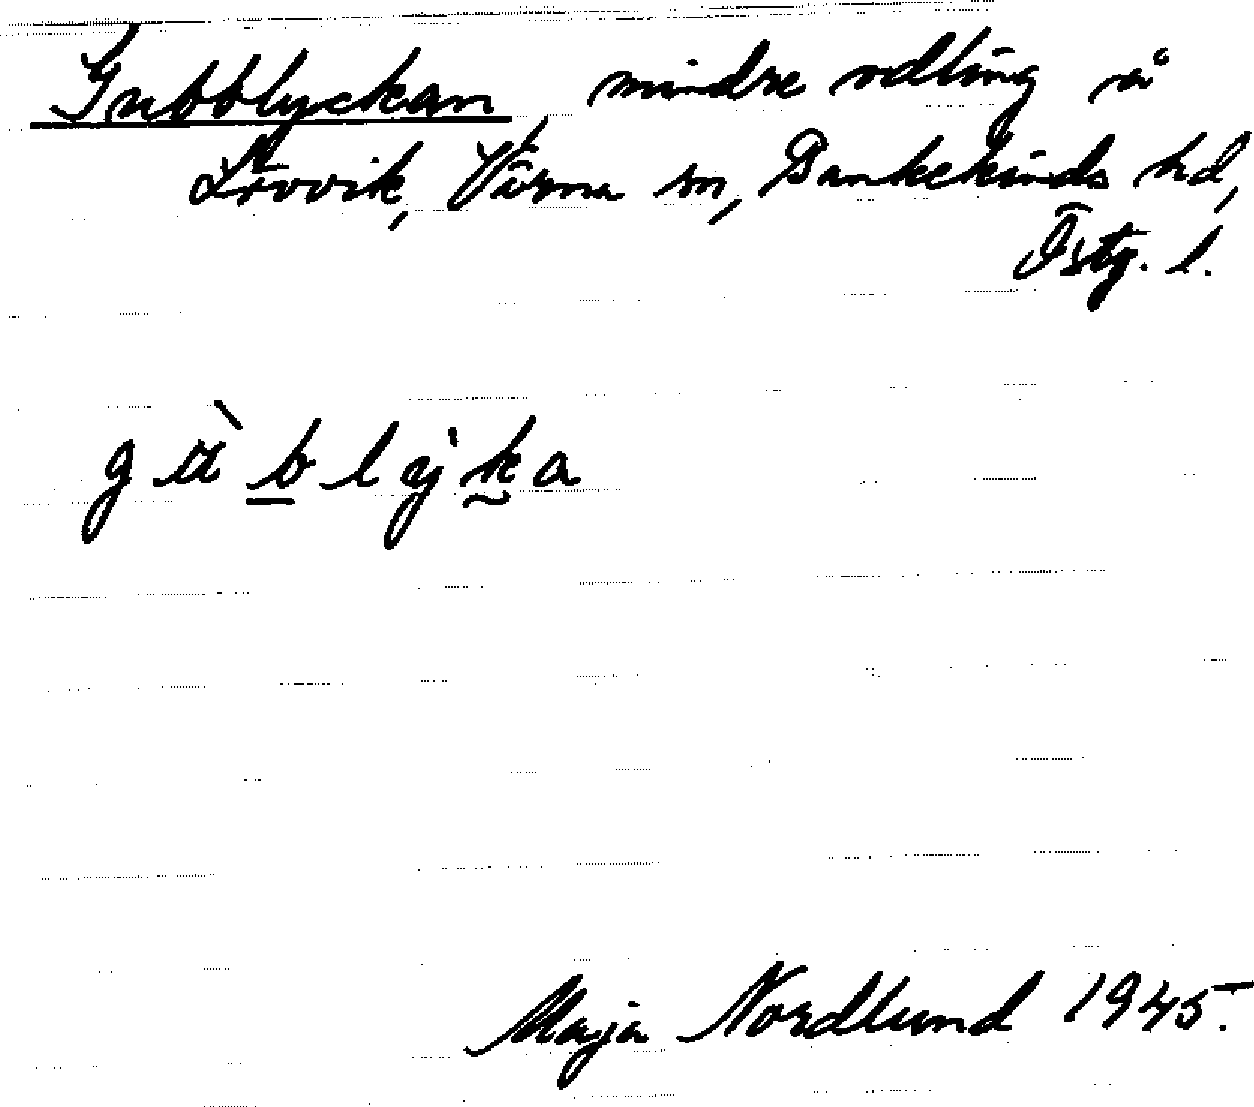 Gubblyckan mindre odling å
Lövvik, Värna sn, Bankekinds hd,
Östg. l.
gu̇̀blỳka
Maja Nordlund 1945.